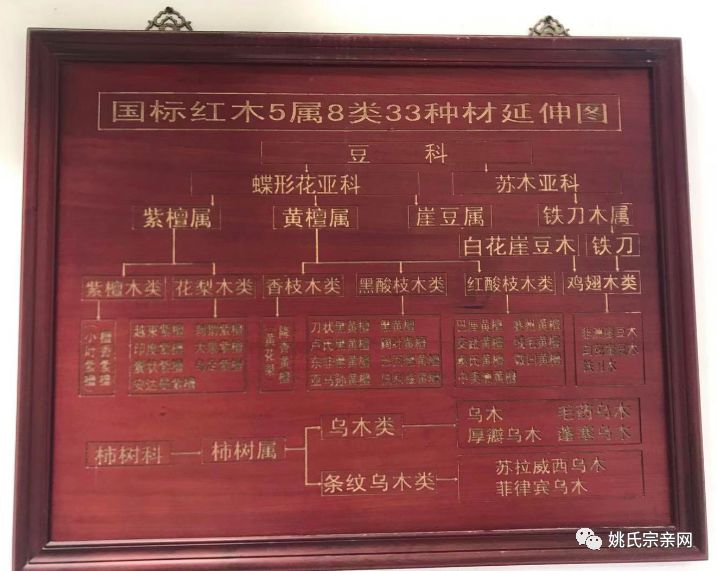 国标红木5属8类33种材延伸图
豆科
蝶形花亚科 苏木亚科
紫檀属 黄檀属 崖豆属 铁刀木属
白花崖豆木 铁刀
紫檀木类 花梨木类 香枝木类 黑酸枝木类 红酸枝木类 鸡翅木类
越柬紫檀
印度紫檀 大果紫檀
安达曼紫檀
降香黄檀
黄花梨
刀状黑黄檀 黑黄檀
卢氏黑黄檀
东非黑黄檀
亚马孙黄檀
巴里黄檀
交趾黄檀 绒毛黄檀
微凹黄檀
中美洲黄檀
非洲崖豆木
白花崖豆木
铁刀木
柿树科 柿树属
乌木类
乌木 毛药乌木
厚瓣乌木 蓬塞乌木
条纹乌木类
苏拉威西乌木
菲律宾乌木
姚氏宗亲网